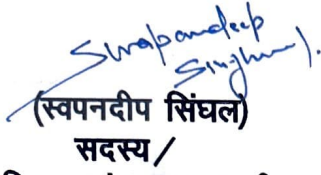 Swapandeep
Singhal
(स्वपनदीप सिंघल)
सदस्य/